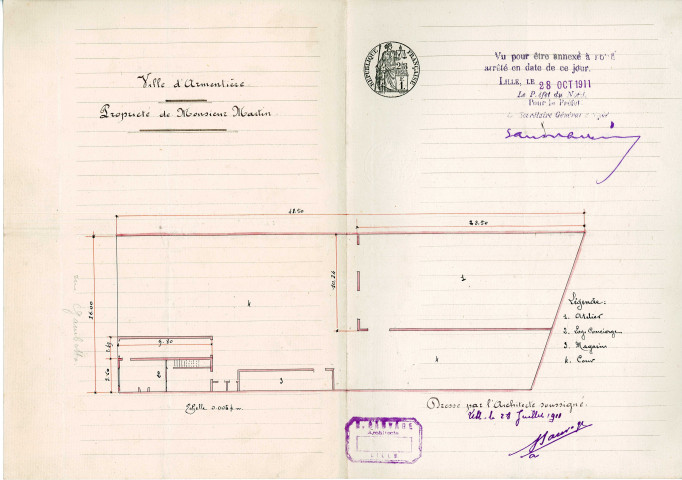 Ville d'Armentière
Propriété de Monsieur Martin
RÉPUBLIQUE FRANÇAISE
Vu pour être annexé à
arrêté en date de ce jour.
LILLE, LE 28 OCT 1911
Le Préfet du Nord,
Pour le Préfet
Secrétaire Général
48.50
23.50
26.00
10.25
9.80
1
4
4
20
3
Légende:
1. Atelier
2. Log. Concierge
3. Magasin
4. Cour
Echelle
Dressé par l'Architecte soussigné.
le 28 Juillet 1911
Architecte
LILLE